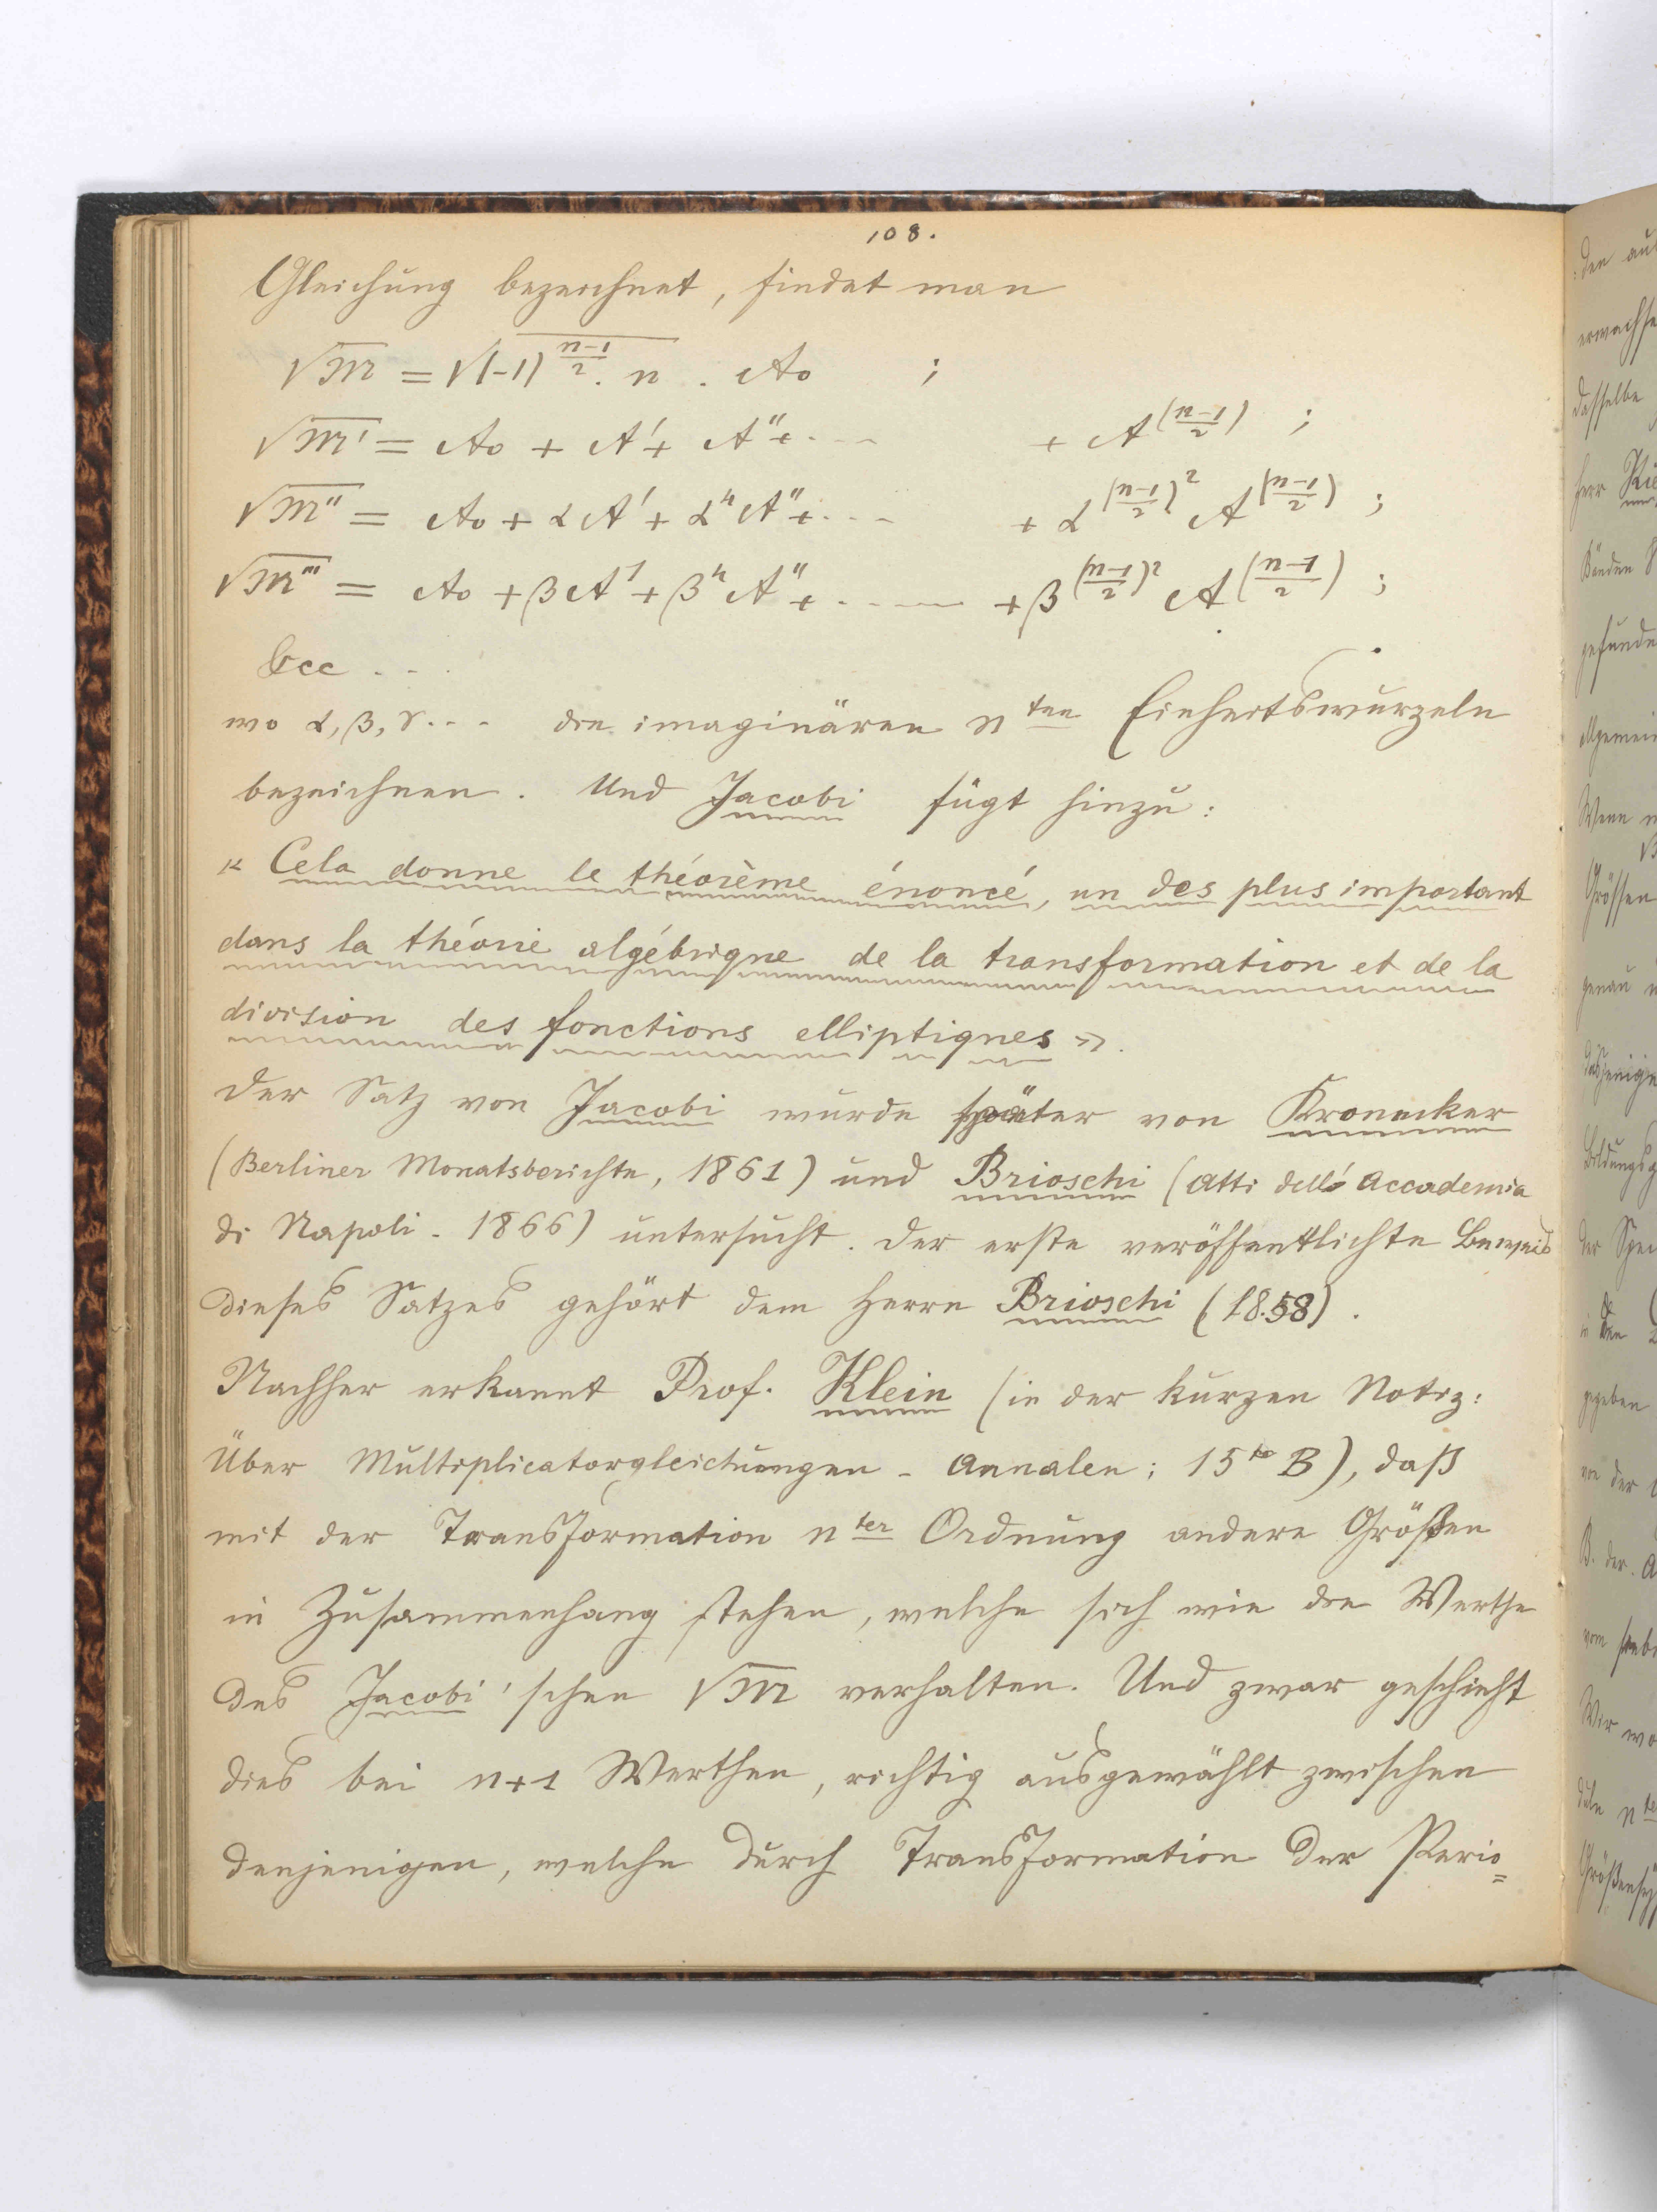 108.
Gleichung bezeichnet, findet man
√M = √((-1)^((n-1)/2) . n) . A₀ ;
√M' = A₀ + A' + A'' + . . . . + A^((n-1)/2) ;
√M'' = A₀ + αA' + α⁴A'' + . . . . + α^((n-1)/2)² A^((n-1)/2) ;
√M''' = A₀ + βA' + β⁴A'' + . . . . . + β^((n-1)/2)² A^((n-1)/2) ;
&cc . . .
wo α, β, γ . . . die imaginären n ten Einheitswurzeln
bezeichnen. Und Jacobi fügt hinzu:
« Cela donne le théorème énoncé, un des plus important
dans la théorie algébrique de la transformation et de la
division des fonctions elliptiques ».
Der Satz von Jacobi wurde später von Kronecker
(Berliner Monatsberichte, 1861) und Brioschi (Atti dell' Accademia
di Napoli - 1866) untersucht. Der erste veröffentlichte Beweis
dieses Satzes gehört dem Herrn Brioschi (1858).
Nachher erkannt Prof. Klein (in der kurzen Notiz:
Über Multiplicatorgleichungen - Annalen; 15te B), daß
mit der Transformation nter Ordnung andere Größen
in Zusammenhang stehen, welche sich wie die Werthe
des Jacobi'schen √M verhalten. Und zwar geschieht
dies bei n+1 Werthen, richtig ausgewählt zwischen
denjenigen, welche durch Transformation der Perio=
den au
erwachse
dasselbe
Herr
Bänden
gefunde
allgemein
Wenn
Grössen
genau
dasjenige
Bildungsg
der
in den
gegeben
von der
B. der
vom
Wir wo
n te
Größensy